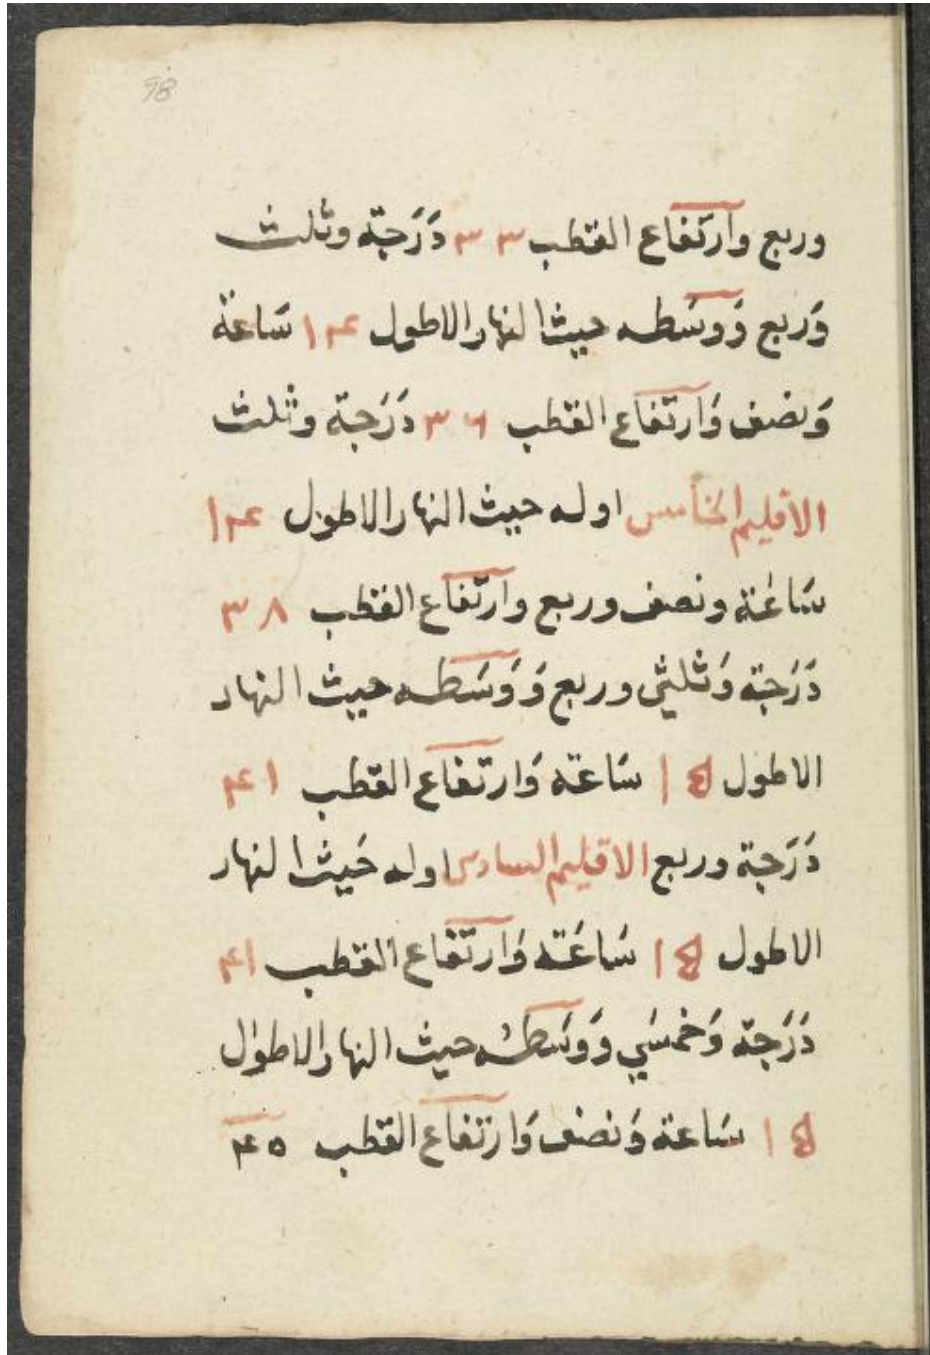 98
وربع وآرتفاع القطب ٣٣ دَرَجَة وثلث
وَربع وَوسَطه حيث النهار الاطول ١٤ سَاعة
وَنصف وَآرتفاع القطب ٣٦ دَرَجَة وثلث
الاقليم الخامس اوله حيث النهار الاطول ١٤
سَاعَة ونصف وربع وآرتفاع القطب ٣٨
دَرَجَة وَثلثي وربع وَوَسَطه حيث النهار
الاطول ١٥ سَاعة وَارتفاع القطب ٤١
دَرَجَة وربع الاقليم السادس اوله حَيث النهار
الاطول ١٥ سَاعَة وَآرتفاع القطب ٤١
دَرَجَة وَخمسَي وَوسَطه حيث النهار الاطول
١٥ سَاعة وَنصف وَارتفاع القطب ٤٥